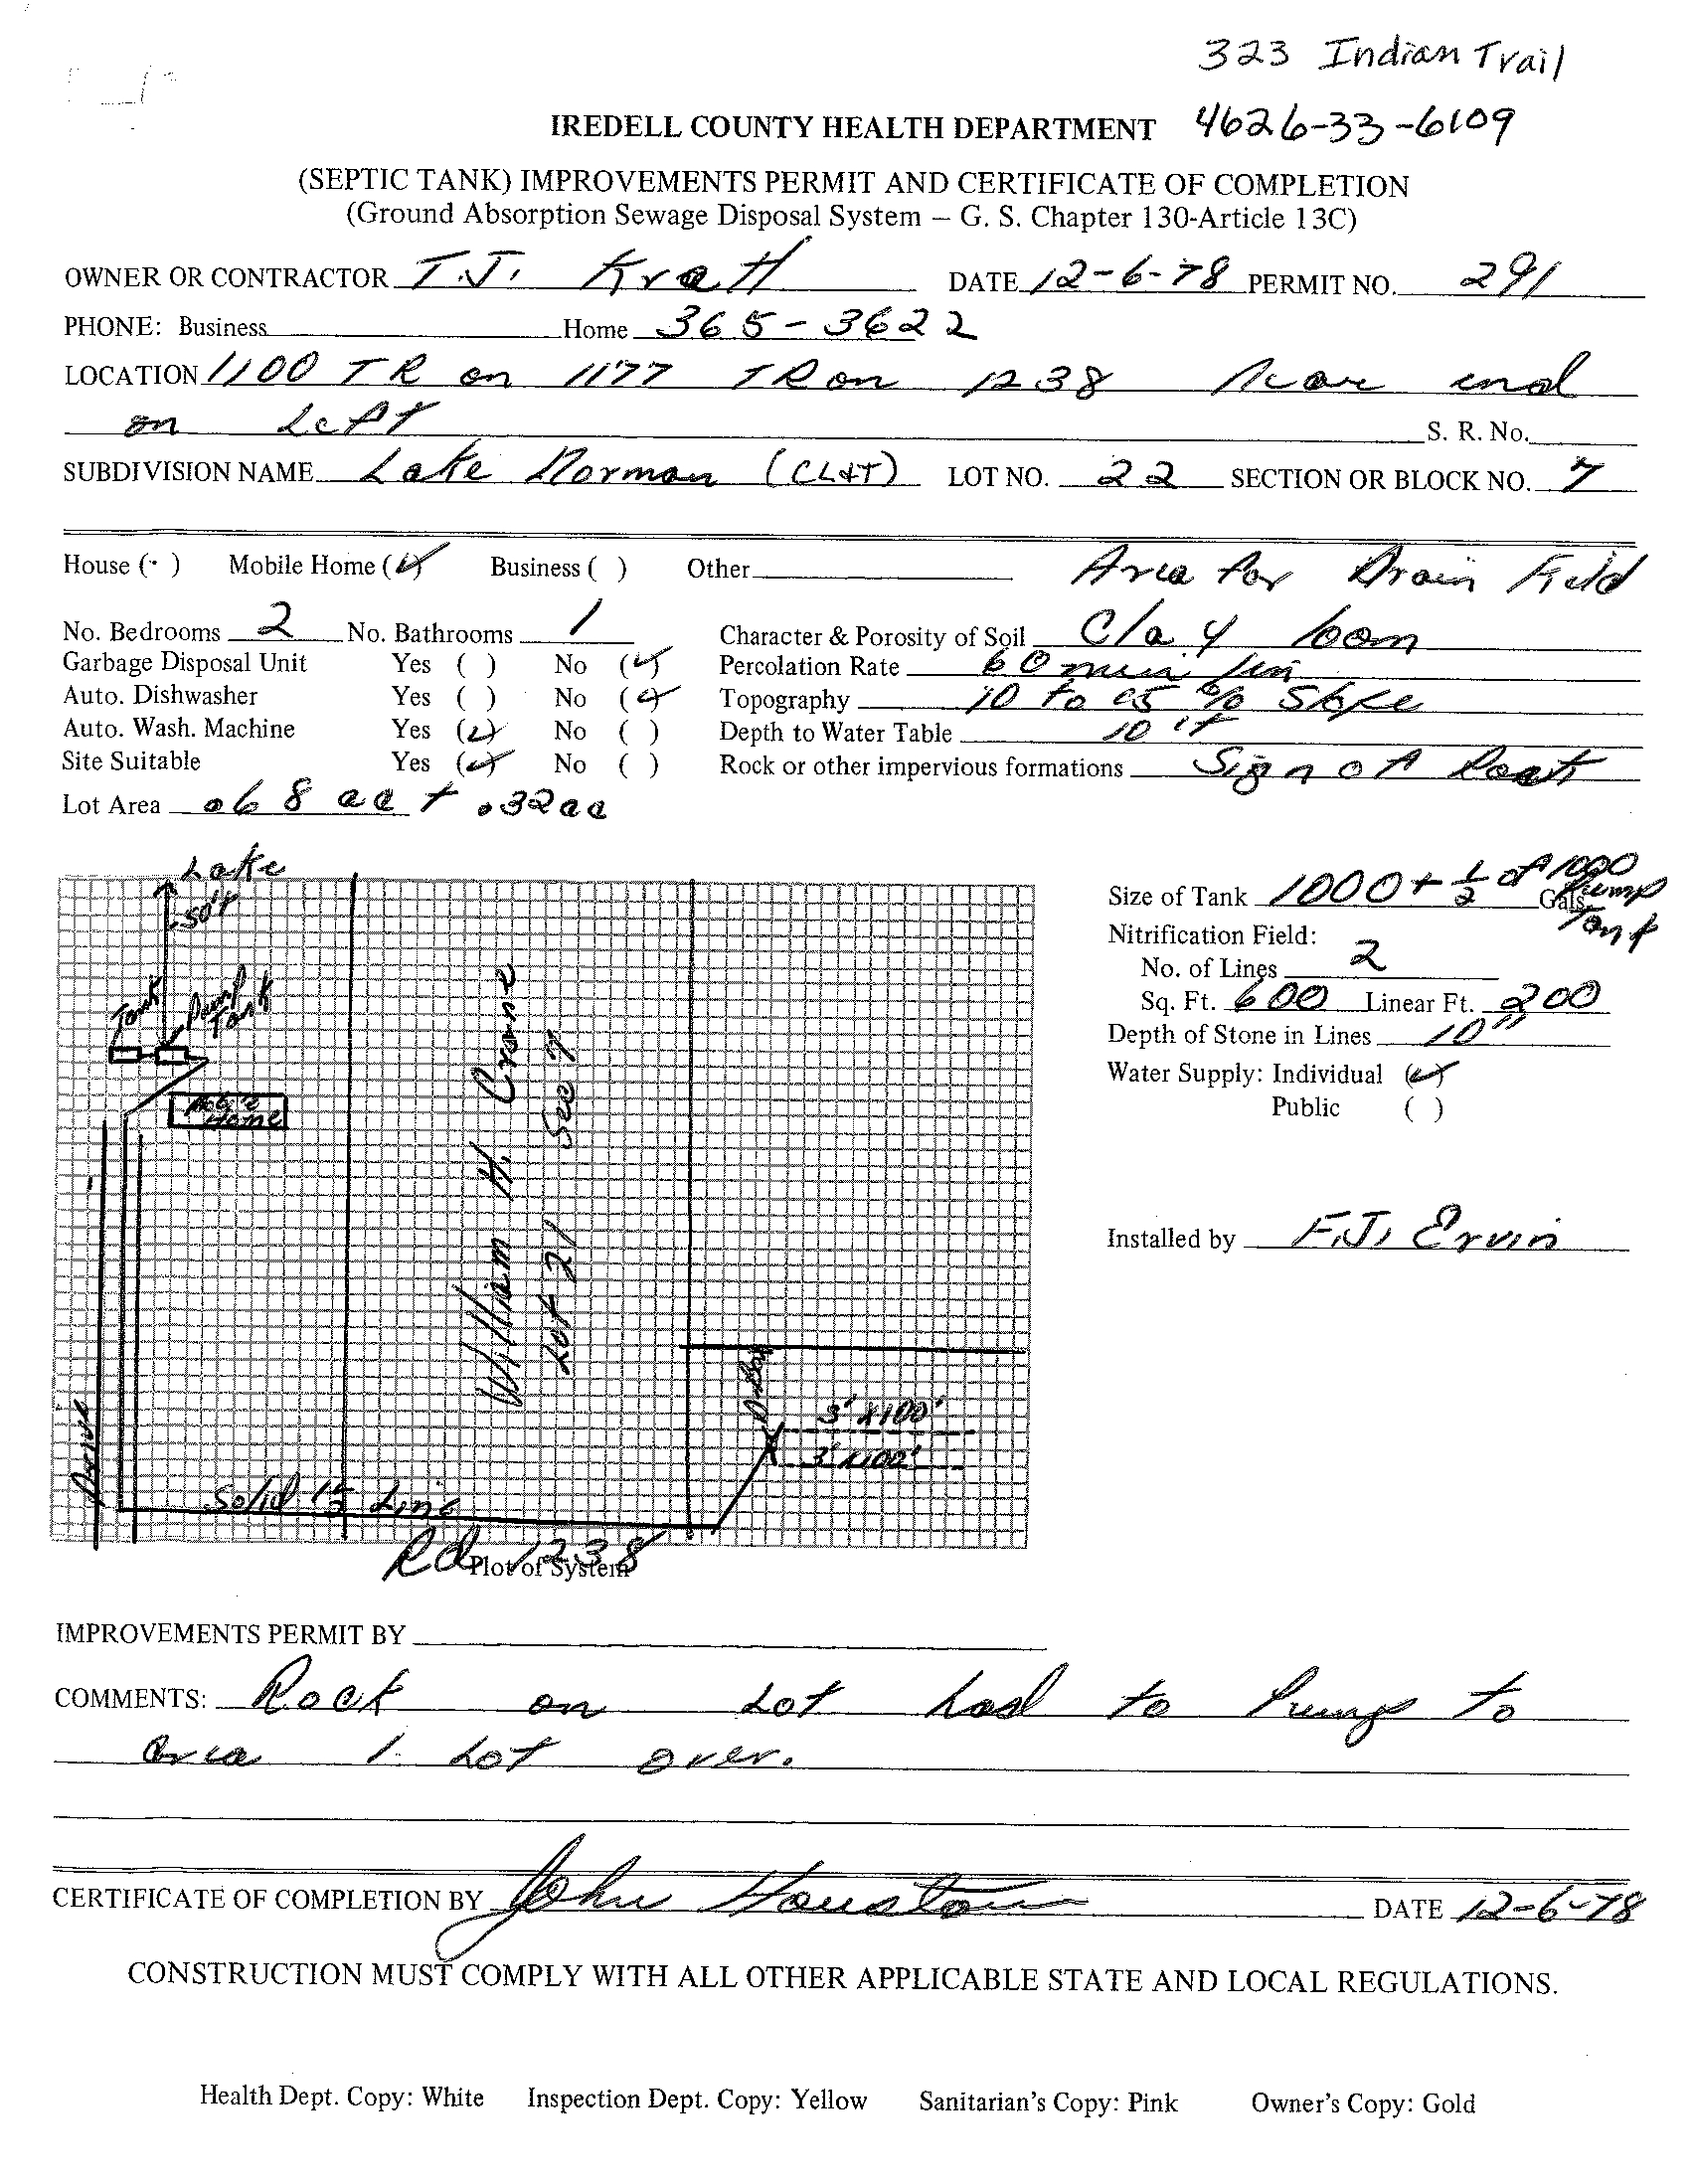 323 Indian Trail
IREDELL COUNTY HEALTH DEPARTMENT 4626-33-6109
(SEPTIC TANK) IMPROVEMENTS PERMIT AND CERTIFICATE OF COMPLETION
(Ground Absorption Sewage Disposal System – G. S. Chapter 130-Article 13C)
OWNER OR CONTRACTOR T.J. DATE 12-6-78 PERMIT NO. 291
PHONE: Business Home 365-3622
LOCATION 1100 TR on 1177 TR on 1238 Near end
on Left S. R. No.
SUBDIVISION NAME Lake Norman (CL&T) LOT NO. 22 SECTION OR BLOCK NO. 7
House ( ) Mobile Home (✓) Business ( ) Other Area for Drain Field
No. Bedrooms 2 No. Bathrooms 1 Character & Porosity of Soil Clay loam
Garbage Disposal Unit Yes ( ) No (✓) Percolation Rate 60 min/in
Auto. Dishwasher Yes ( ) No (✓) Topography 10 to 15 % Slope
Auto. Wash. Machine Yes (✓) No ( ) Depth to Water Table 10 ft
Site Suitable Yes (✓) No ( ) Rock or other impervious formations Sign of Rock
Lot Area .68 ac + .32 ac
Lake
50 ft
Tank
Pump Tank
Mobile Home
William H. Crone
Lot 21 Sec 7
Drive
3' x 100'
3' x 100'
Solid Line
Rd 1238
Plot of System
Size of Tank 1000 + 1/2 of 1000 Gals. Pump Tank
Nitrification Field:
No. of Lines 2
Sq. Ft. 600 Linear Ft. 200
Depth of Stone in Lines 10"
Water Supply: Individual (✓)
Public ( )
Installed by F.J. Ervin
IMPROVEMENTS PERMIT BY
COMMENTS: Rock on Lot had to Pump to
area 1 Lot over.
CERTIFICATE OF COMPLETION BY John Houston DATE 12-6-78
CONSTRUCTION MUST COMPLY WITH ALL OTHER APPLICABLE STATE AND LOCAL REGULATIONS.
Health Dept. Copy: White Inspection Dept. Copy: Yellow Sanitarian's Copy: Pink Owner's Copy: Gold